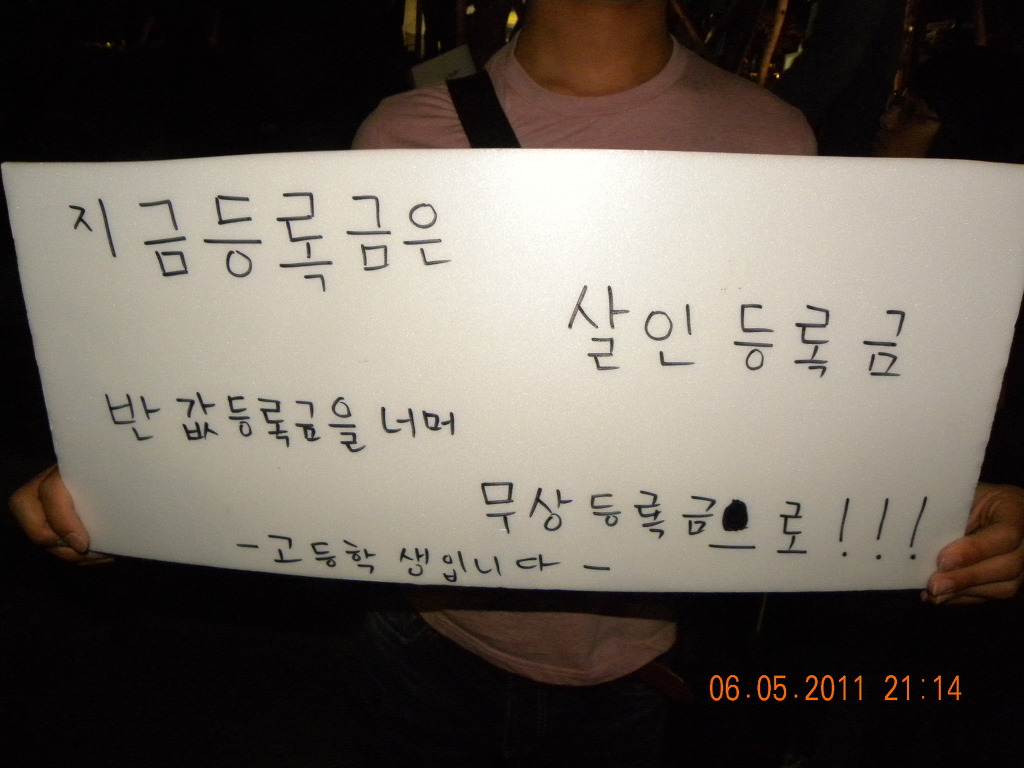 지금등록금은
살인등록금
반값등록금을 너머
무상등록금으로!!!
-고등학생입니다-
06.05.2011 21:14